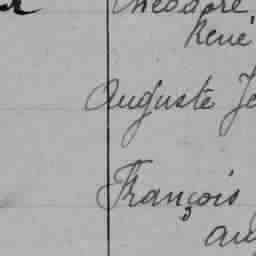 Théodore
René
Auguste Je
François
au